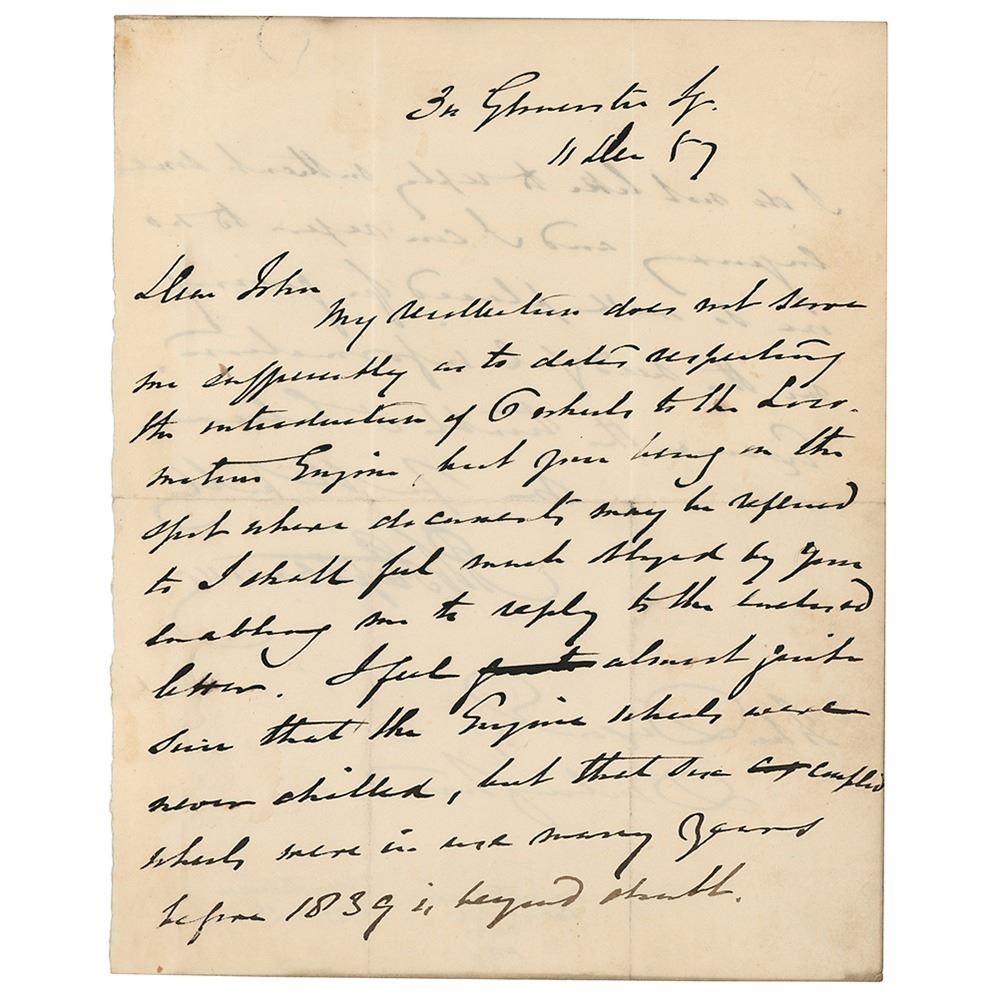 34 Gloucester Sq.
11 Dec 57
Dear John
My recollection does not serve
me sufficiently as to dates respecting
the introduction of 6 wheels to the Loco-
motive Engine, but you being on the
spot where documents may be refered
to I shall feel much obliged by your
enabling me to reply to the enclosed
letter. I feel almost quite
sure that the Engine wheels were
never chilled, but that six coupled
wheels were in use many years
before 1839 is beyond doubt.